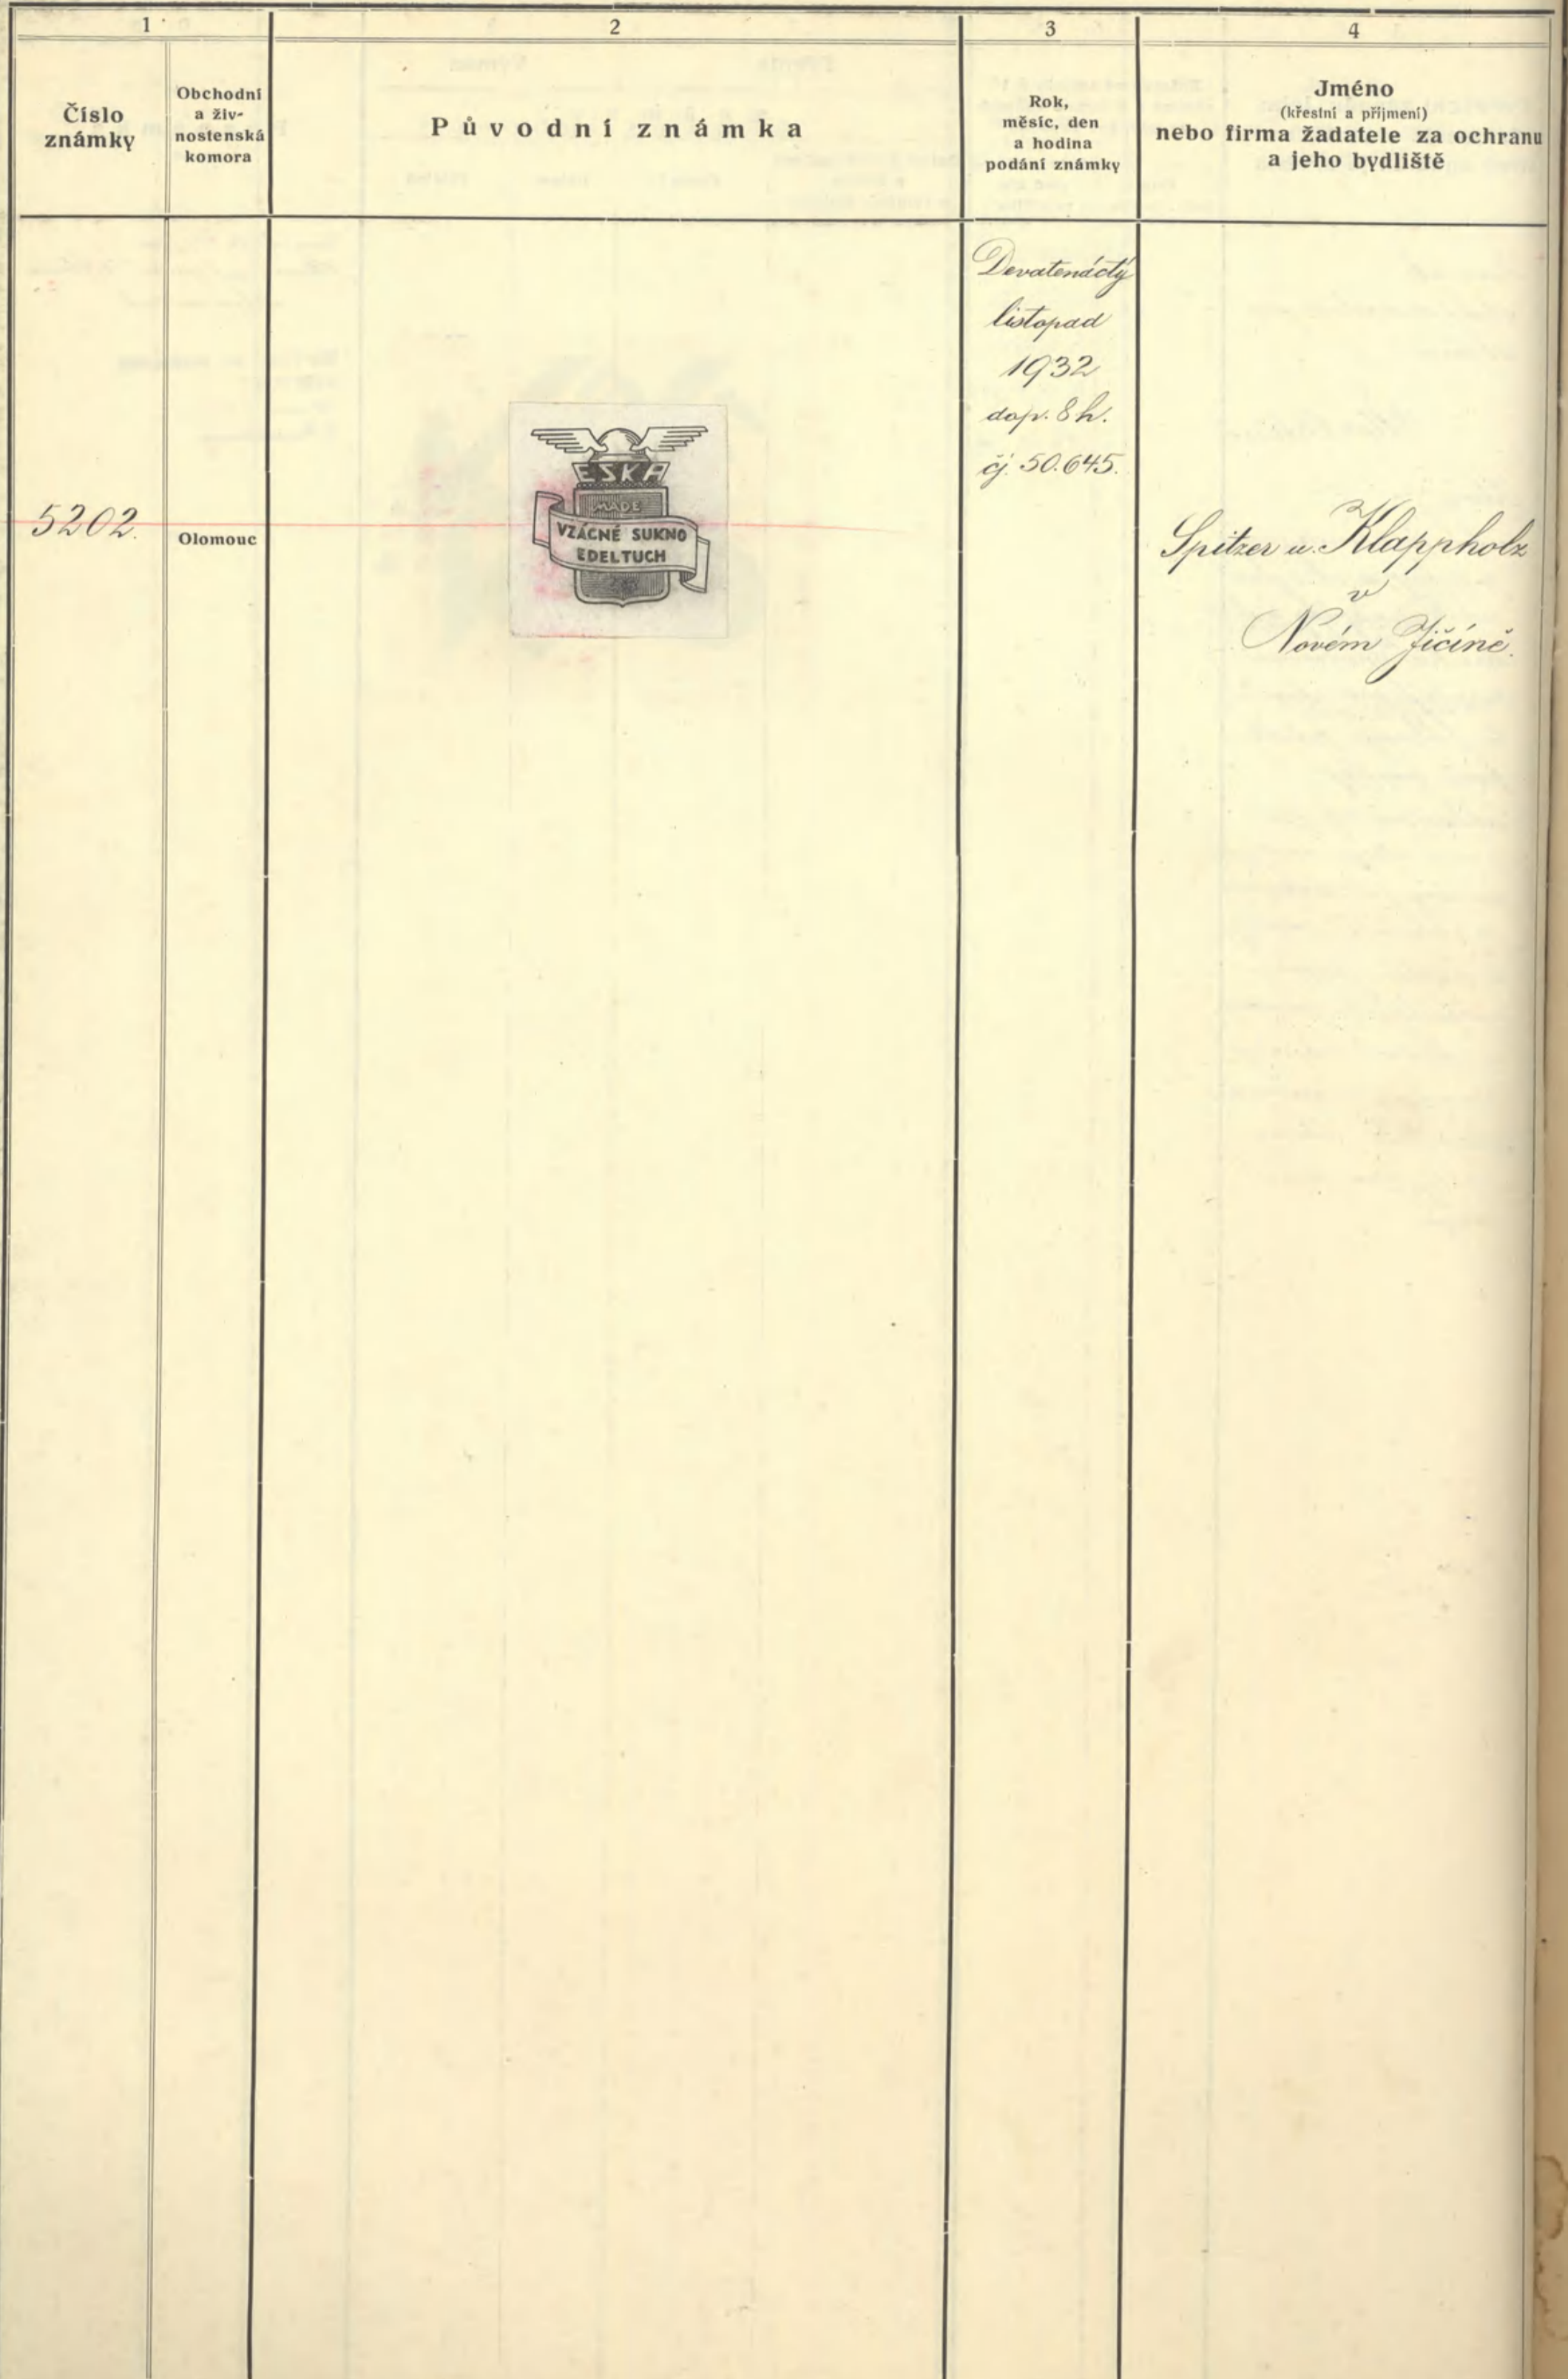 1
2
3
4
Číslo
známky
Obchodní
a živ-
nostenská
komora
Původní známka
Rok,
měsíc, den
a hodina
podání známky
Jméno
(křestní a příjmení)
nebo firma žadatele za ochranu
a jeho bydliště
5202.
Olomouc
ESKA
MADE
VZÁCNÉ SUKNO
EDELTUCH
Devatenáctý
listopad
1932
dop. 8 h.
čj. 50.645.
Spitzer u. Klappholz
v
Novém Jičíně.